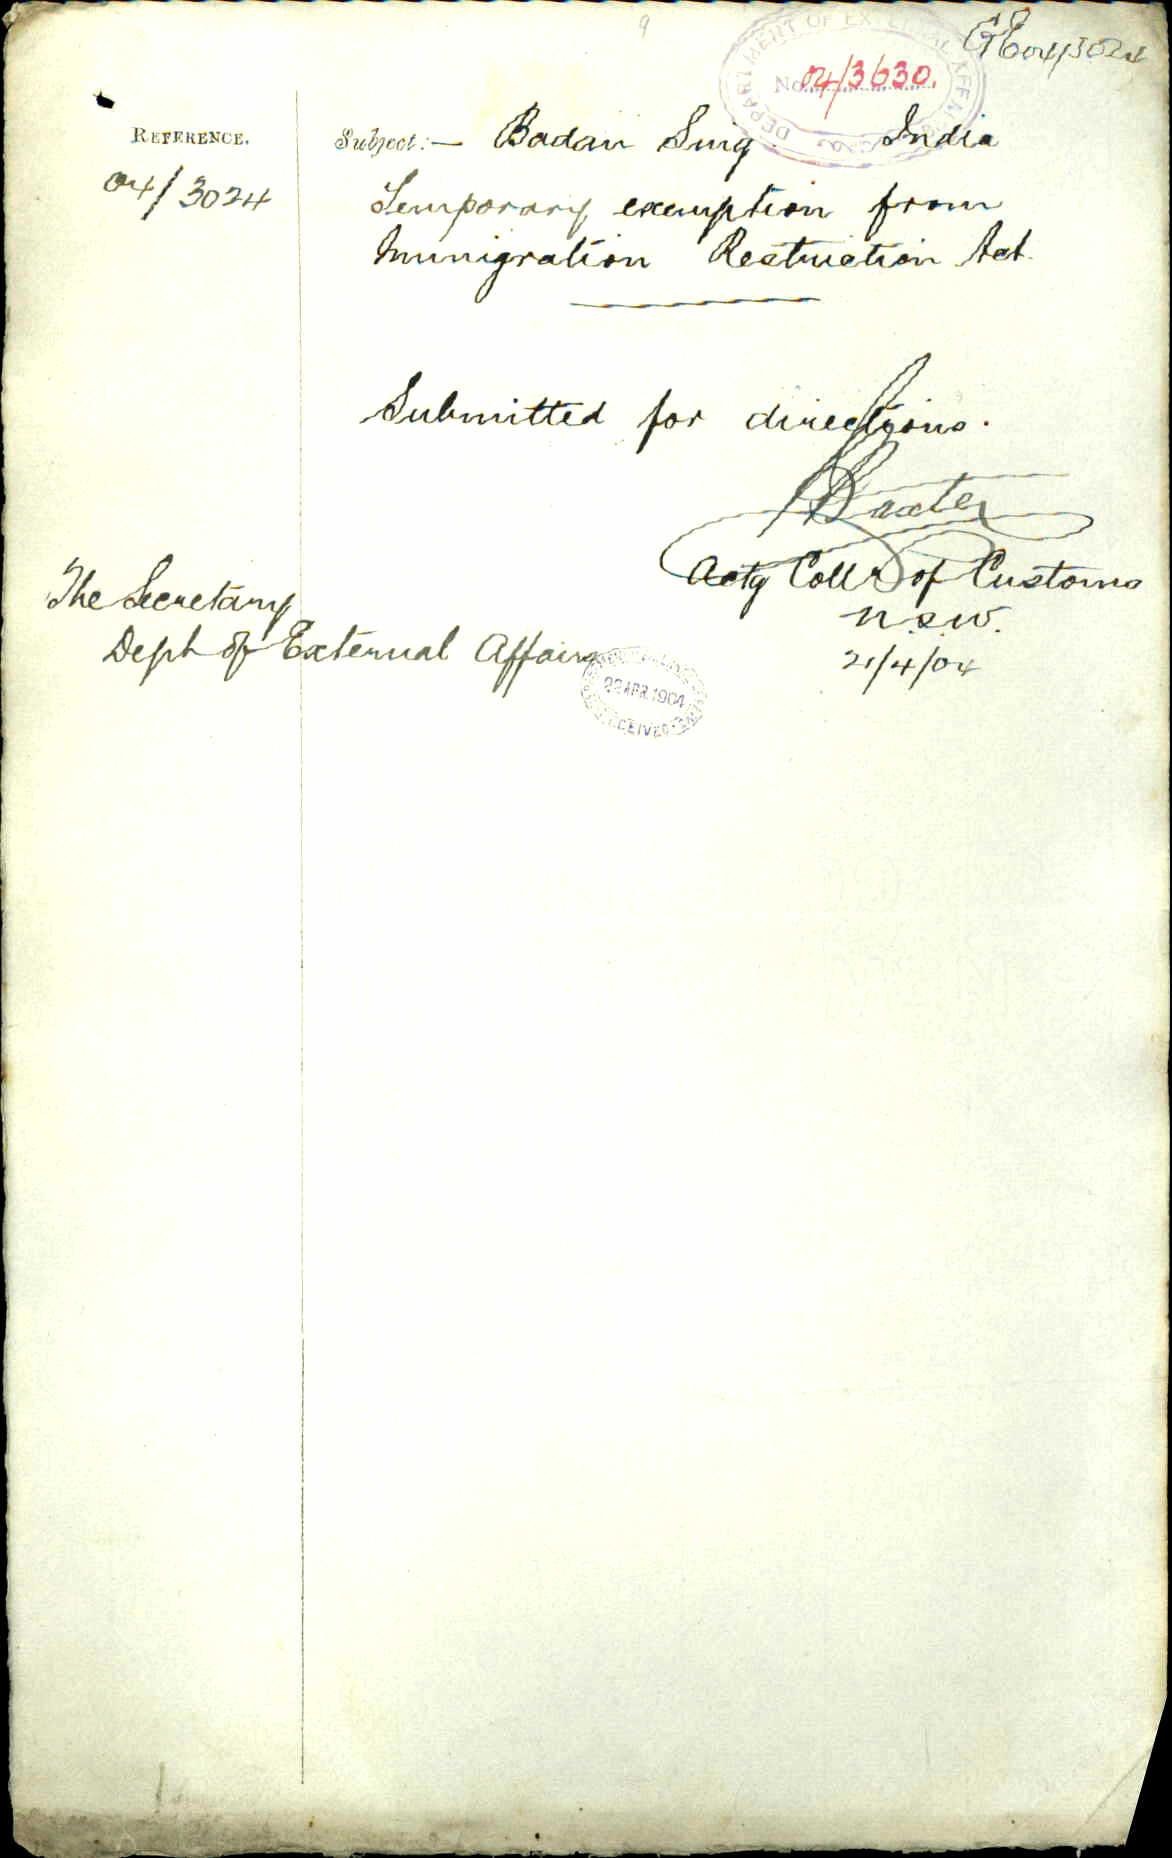 9
04/3024
DEPARTMENT OF EXTERNAL AFFAIRS
No. 04/3630.
REFERENCE.
04/3024
Subject:— Badan Sing. India
Temporary exemption from
Immigration Restriction Act.
Submitted for directions.
Baxter
Actg Collr of Customs
N.S.W.
21/4/04
The Secretary
Dept of External Affairs
22 APR 1904
RECEIVED